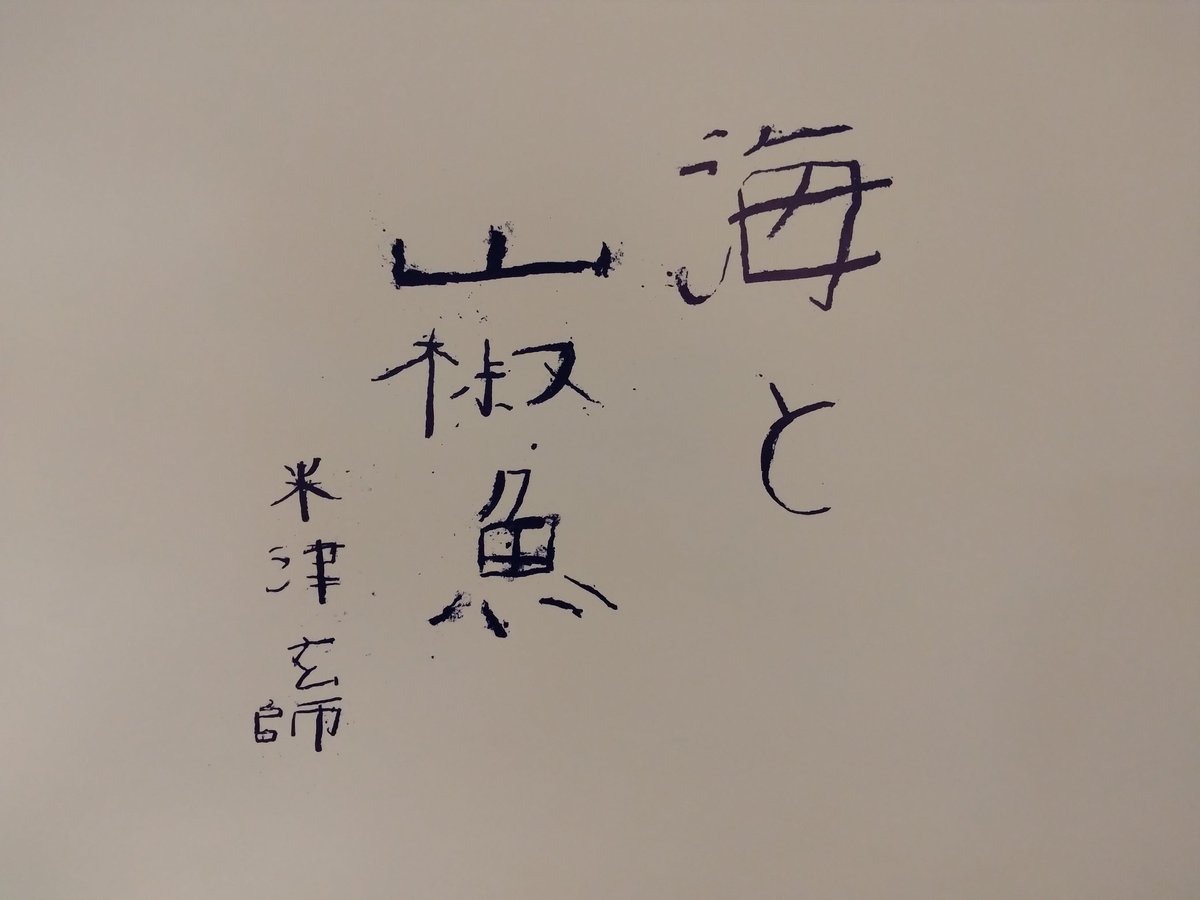 海と
山椒魚
米津玄師